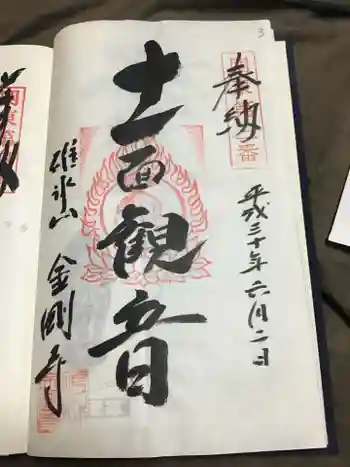 3
奉納
平成三十年六月二日
十一面観音
碓氷山
金剛寺